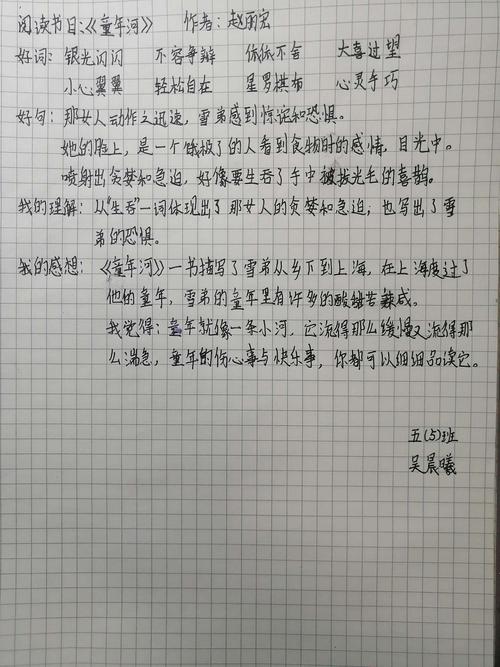 阅读书目:《童年河》 作者:赵丽宏
好词:银光闪闪 不容争辩 依依不舍 大喜过望
小心翼翼 轻松自在 星罗棋布 心灵手巧
好句:那女人动作之迅速,雪弟感到惊诧和恐惧。
她的脸上,是一个饿极了的人看到食物时的感情,目光中。
喷射出贪婪和急迫,好像要生吞了手中被拔光毛的喜鹊。
我的理解:从“生吞”一词体现出了那女人的贪婪和急迫;也写出了雪
弟的恐惧。
我的感想:《童年河》一书描写了雪弟从乡下到上海,在上海度过了
他的童年,雪弟的童年里有许多的酸甜苦辣咸。
我觉得:童年就像一条小河,它流得那么缓慢又流得那
么湍急,童年的伤心事与快乐事,你都可以细细品读它。
五(5)班
吴晨曦